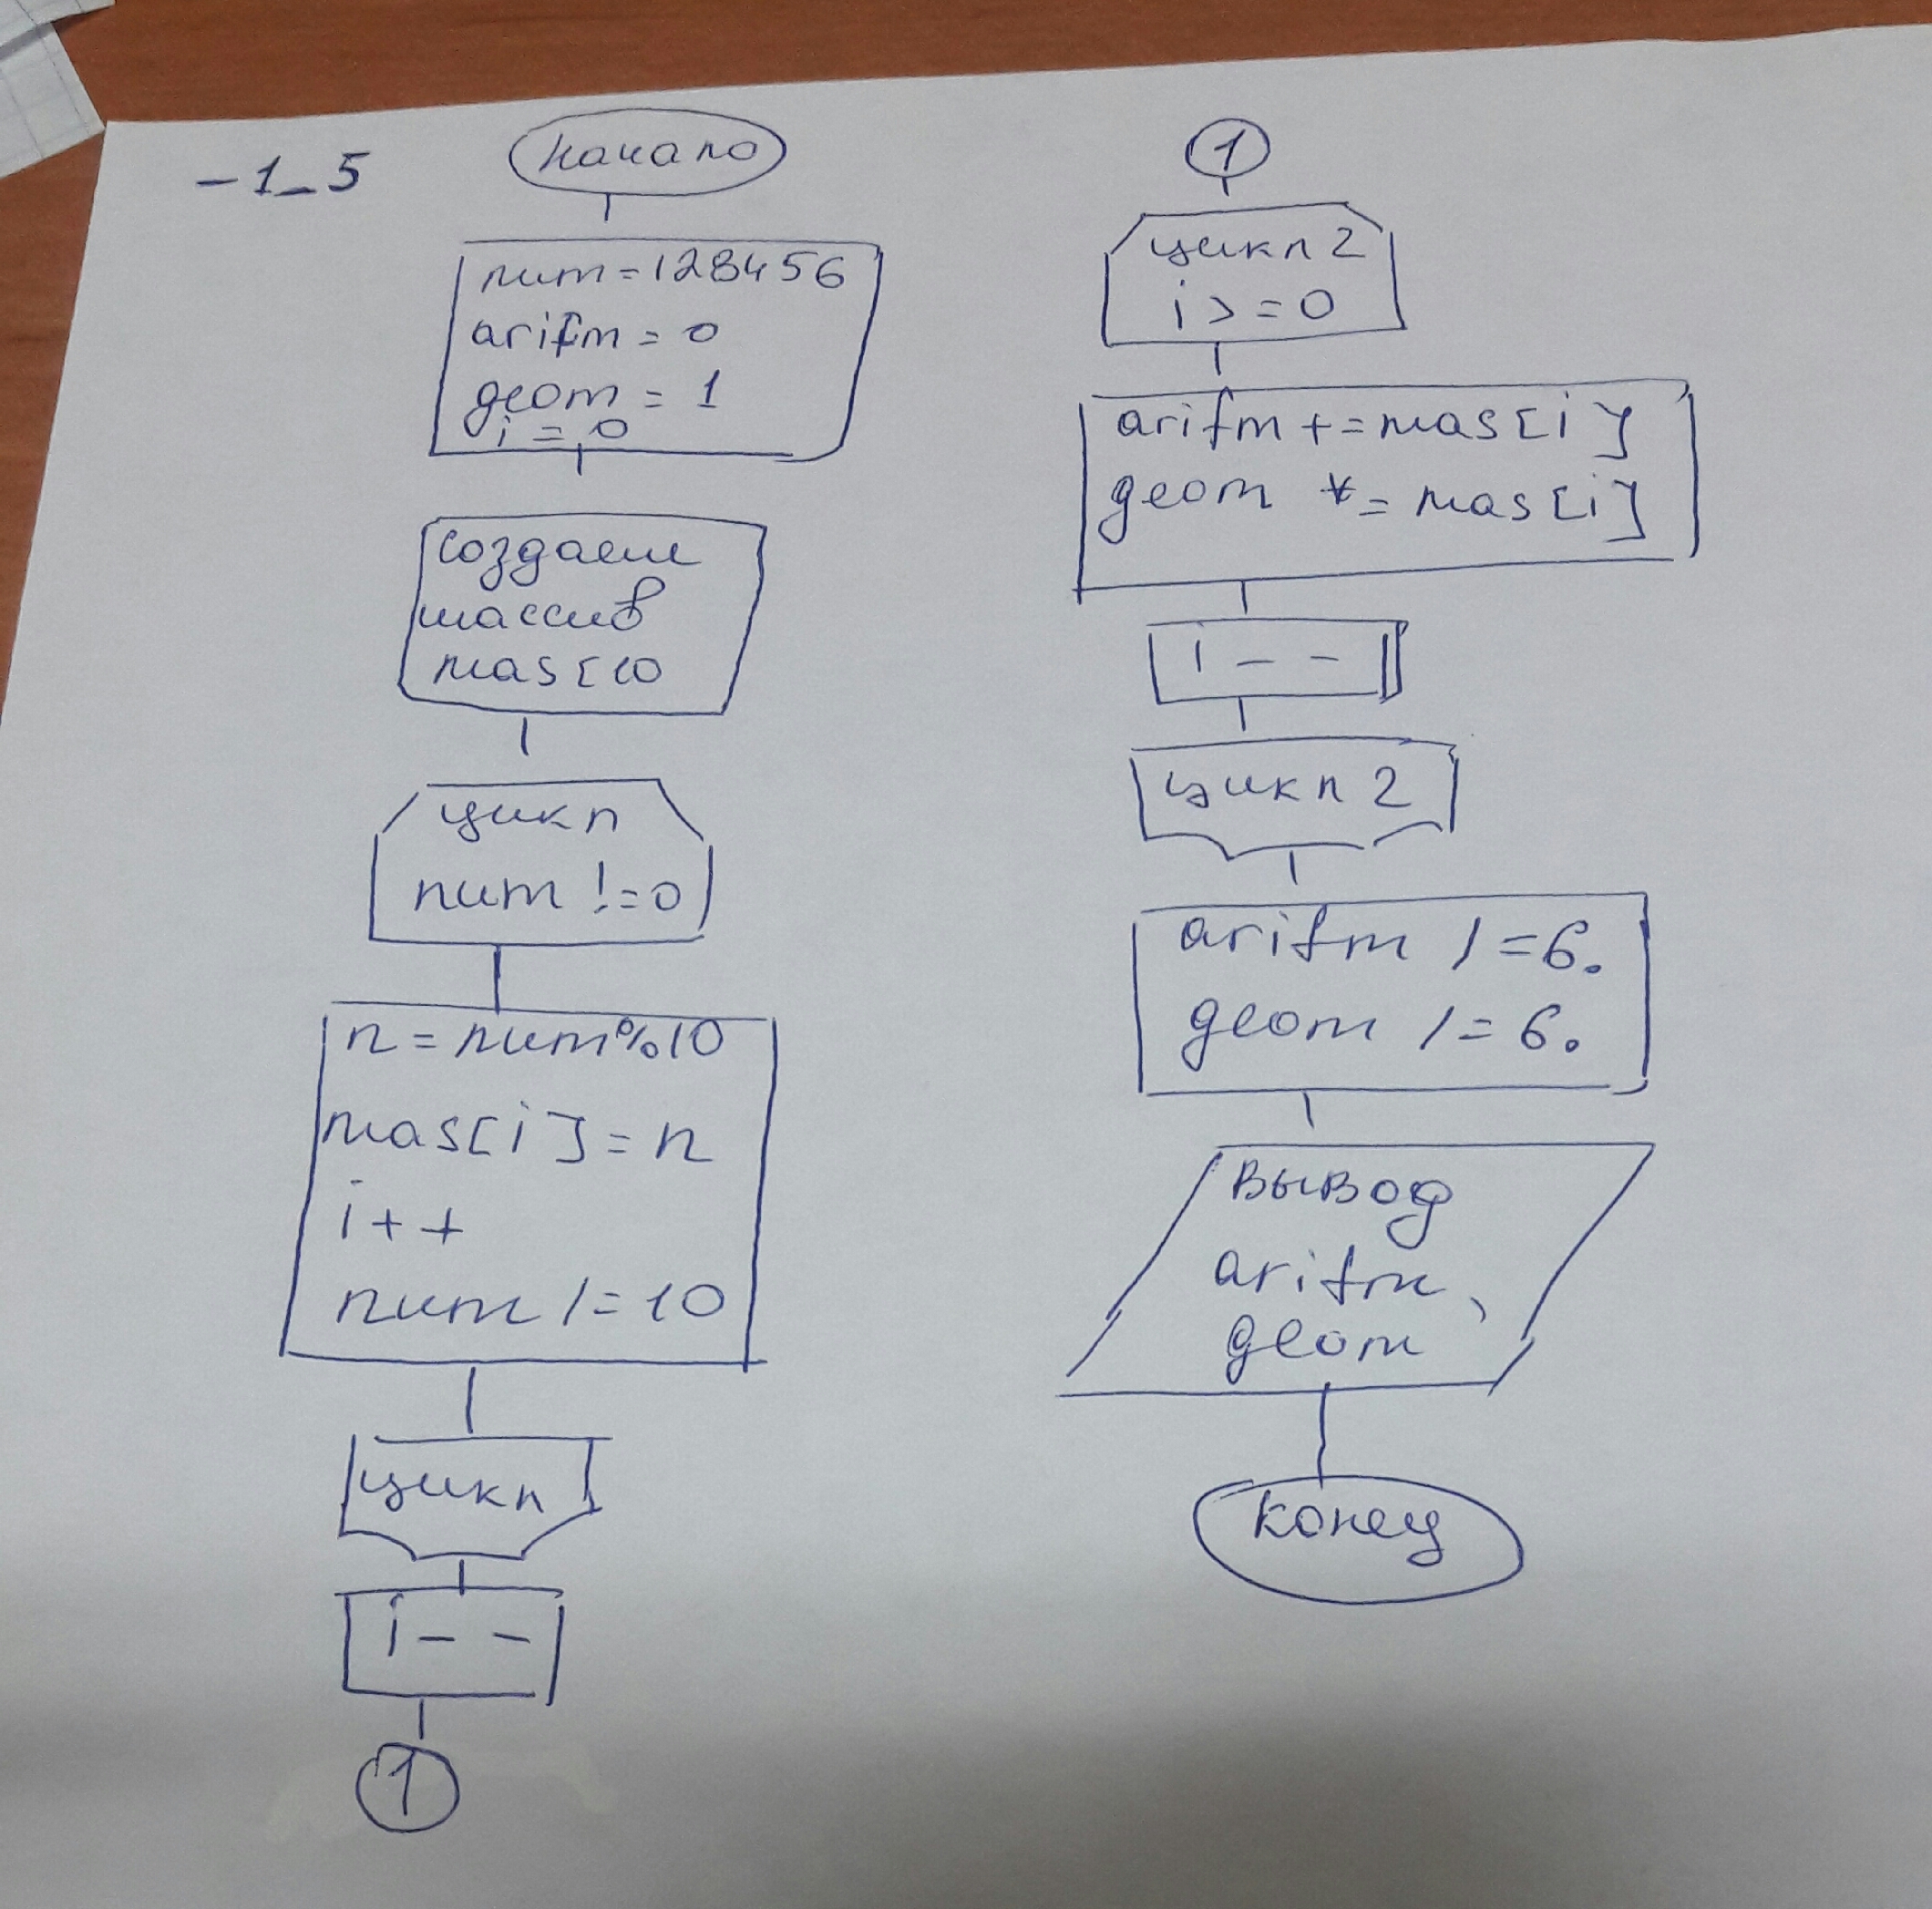 -1_5
начало
num=128456
arifm = 0
geom = 1
i = 0
создаем
массив
mas[10
цикл
num !=0
n = num%10
mas[i]=n
i++
num /=10
цикл
i--
1
1
цикл 2
i >=0
arifm +=mas[i]
geom *= mas[i]
i--
цикл 2
arifm /=6.
geom /=6.
вывод
arifm,
geom
конец